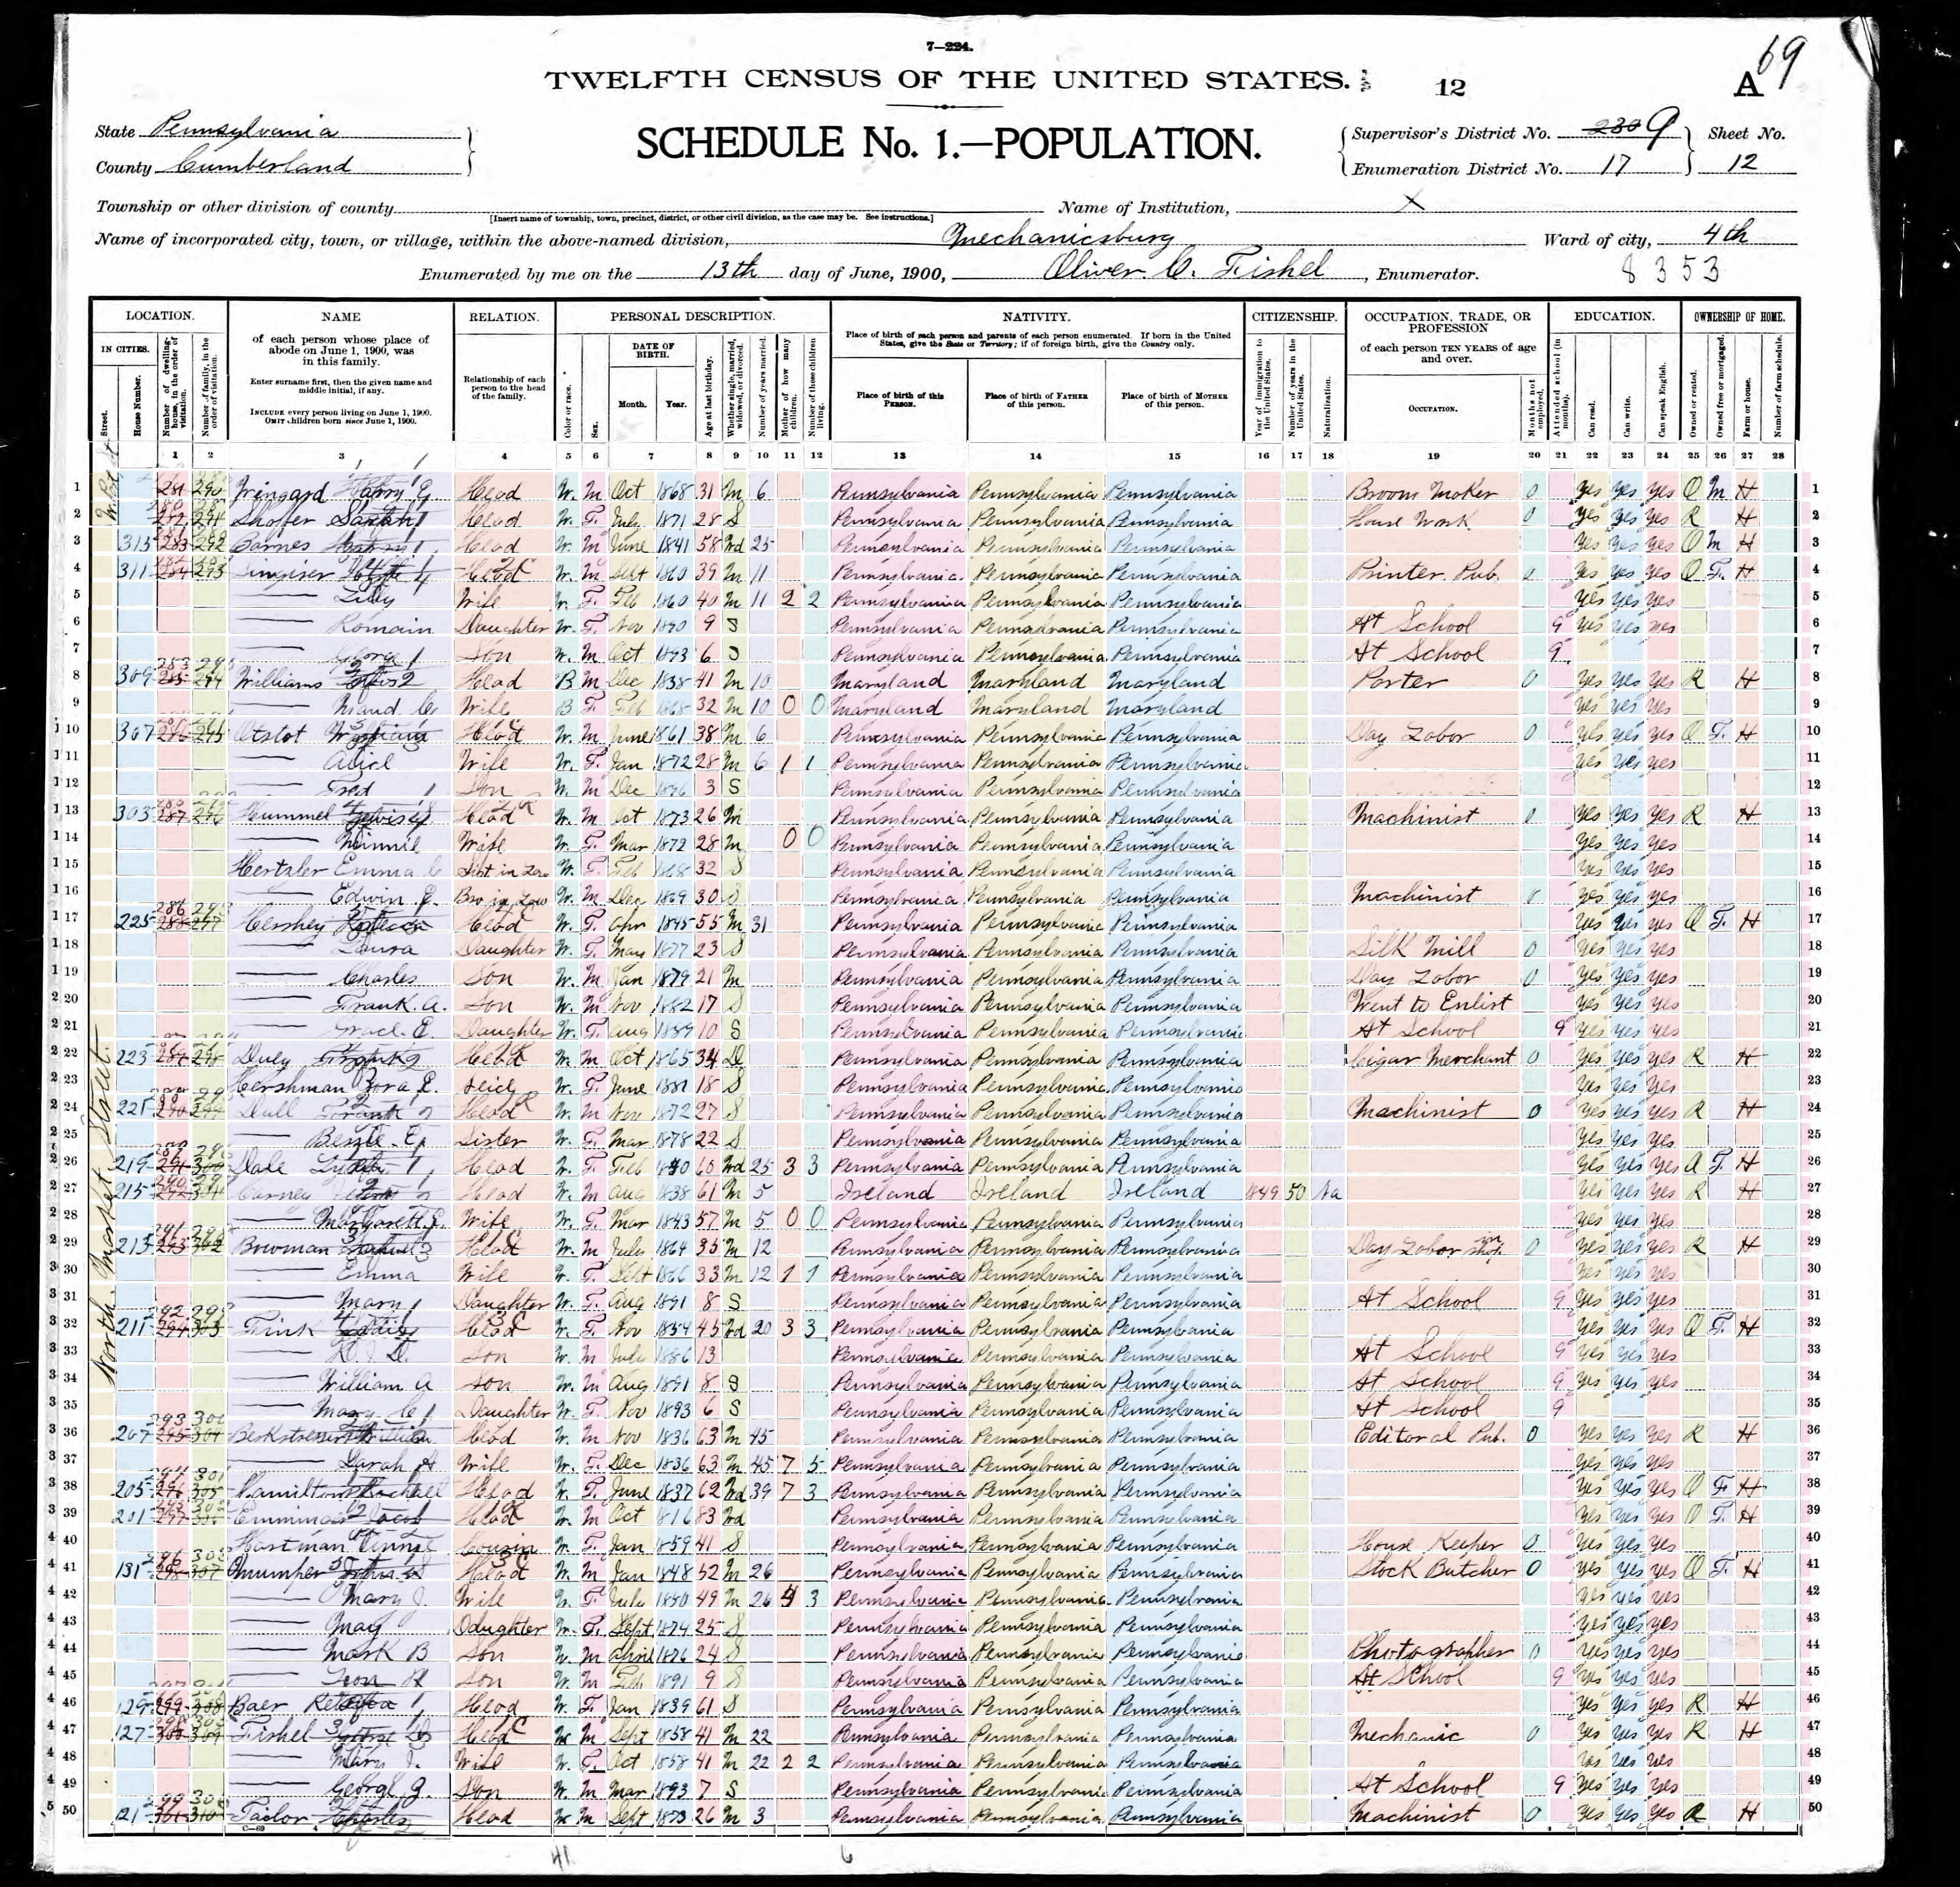 7—224.
69
TWELFTH CENSUS OF THE UNITED STATES.
12 A
State Pennsylvania
County Cumberland
SCHEDULE No. 1.—POPULATION.
Supervisor's District No. 230 9
Enumeration District No. 17
Sheet No. 12
Township or other division of county
[Insert name of township, town, precinct, district, or other civil division, as the case may be. See instructions.]
Name of Institution, X
Name of incorporated city, town, or village, within the above-named division, Mechanicsburg
Ward of city, 4th
Enumerated by me on the 13th day of June, 1900, Oliver C. Fishel, Enumerator.
8353
LOCATION. NAME RELATION. PERSONAL DESCRIPTION. NATIVITY. CITIZENSHIP. OCCUPATION, TRADE, OR PROFESSION EDUCATION. OWNERSHIP OF HOME.
IN CITIES.
Street.
House Number.
Number of dwelling-house, in the order of visitation.
Number of family, in the order of visitation.
of each person whose place of abode on June 1, 1900, was in this family.
Enter surname first, then the given name and middle initial, if any.
INCLUDE every person living on June 1, 1900. OMIT children born since June 1, 1900.
Relationship of each person to the head of the family.
Color or race.
Sex.
DATE OF BIRTH.
Month. Year.
Age at last birthday.
Whether single, married, widowed, or divorced.
Number of years married.
Mother of how many children.
Number of these children living.
Place of birth of each person and parents of each person enumerated. If born in the United States, give the State or Territory; if of foreign birth, give the Country only.
Place of birth of this PERSON.
Place of birth of FATHER of this person.
Place of birth of MOTHER of this person.
Year of immigration to the United States.
Number of years in the United States.
Naturalization.
of each person TEN YEARS of age and over.
OCCUPATION.
Months not employed.
Attended school (in months).
Can read.
Can write.
Can speak English.
Owned or rented.
Owned free or mortgaged.
Farm or house.
Number of farm schedule.
1 2 3 4 5 6 7 8 9 10 11 12 13 14 15 16 17 18 19 20 21 22 23 24 25 26 27 28
North Market Street.
1 Head W. M Oct 1868 31 M 6 Pennsylvania Pennsylvania Pennsylvania Broom Maker 0 Yes Yes Yes O M H 1
2 Head W. F. July 1871 28 S Pennsylvania Pennsylvania Pennsylvania House Work 0 Yes Yes Yes R H 2
3 315 Barnes Head W. M June 1841 58 Wd 25 Pennsylvania Pennsylvania Pennsylvania Yes Yes Yes O M H 3
4 311 Head W. M Sept 1860 39 M 11 Pennsylvania Pennsylvania Pennsylvania Printer Pub. 0 Yes Yes Yes O F. H 4
5 Lilly Wife W. F. Feb 1860 40 M 11 2 2 Pennsylvania Pennsylvania Pennsylvania Yes Yes Yes 5
6 Romain Daughter W. F. Nov 1890 9 S Pennsylvania Pennsylvania Pennsylvania At School 9 Yes Yes Yes 6
7 George Son W. M Oct 1893 6 S Pennsylvania Pennsylvania Pennsylvania At School 9 7
8 309 Williams Head B M Dec 1858 41 M 10 Maryland Maryland Maryland Porter 0 Yes Yes Yes R H 8
9 Maud Wife B F. Feb 1868 32 M 10 0 0 Maryland Maryland Maryland Yes Yes Yes 9
10 307 Otstot William Head W. M June 1861 38 M 6 Pennsylvania Pennsylvania Pennsylvania Day Labor 0 Yes Yes Yes O F. H 10
11 Alice Wife W. F. Jan 1872 28 M 6 1 1 Pennsylvania Pennsylvania Pennsylvania Yes Yes Yes 11
12 Fred Son W. M Dec 1896 3 S Pennsylvania Pennsylvania Pennsylvania 12
13 303 Hummel Head W. M Oct 1873 26 M Pennsylvania Pennsylvania Pennsylvania Machinist 0 Yes Yes Yes R H 13
14 Minnie Wife W. F. Mar 1872 28 M 0 0 Pennsylvania Pennsylvania Pennsylvania Yes Yes Yes 14
15 Hertzler Emma C Sist in Law W. F. Feb 1868 32 S Pennsylvania Pennsylvania Pennsylvania Yes Yes Yes 15
16 Edwin E. Bro in Law W. M Dec 1869 30 S Pennsylvania Pennsylvania Pennsylvania Machinist 0 Yes Yes Yes 16
17 225 Hershey Rebecca Head W. F. Apr 1845 55 M 31 Pennsylvania Pennsylvania Pennsylvania Yes Yes Yes O F. H 17
18 Laura Daughter W. F. May 1877 23 S Pennsylvania Pennsylvania Pennsylvania Silk Mill 0 Yes Yes Yes 18
19 Charles Son W. M Jan 1879 21 M Pennsylvania Pennsylvania Pennsylvania Day Labor 0 Yes Yes Yes 19
20 Frank. A. Son W. M Nov 1882 17 S Pennsylvania Pennsylvania Pennsylvania Went to Enlist Yes Yes Yes 20
21 Grace E. Daughter W. F. Aug 1889 10 S Pennsylvania Pennsylvania Pennsylvania At School 9 Yes Yes Yes 21
22 223 Duey Head W. M Oct 1865 34 D Pennsylvania Pennsylvania Pennsylvania Cigar Merchant 0 Yes Yes Yes R H 22
23 Hershman Cora E. Neice W. F. June 1881 18 S Pennsylvania Pennsylvania Pennsylvania Yes Yes Yes 23
24 221 Dull Frank Head W. M Nov 1872 27 S Pennsylvania Pennsylvania Pennsylvania Machinist 0 Yes Yes Yes R H 24
25 Bessie E. Sister W. F. Mar 1878 22 S Pennsylvania Pennsylvania Pennsylvania Yes Yes Yes 25
26 219 Dale Head W. F. Feb 1840 60 Wd 25 3 3 Pennsylvania Pennsylvania Pennsylvania Yes Yes Yes O F. H 26
27 215 Carney Head W. M Aug 1838 61 M 5 Ireland Ireland Ireland 1849 50 Na Yes Yes Yes R H 27
28 Margarett E. Wife W. F. Mar 1843 57 M 5 0 0 Pennsylvania Pennsylvania Pennsylvania Yes Yes Yes 28
29 213 Bowman Head W. M July 1864 35 M 12 Pennsylvania Pennsylvania Pennsylvania Day Labor in Shop 0 Yes Yes Yes R H 29
30 Emma Wife W. F. Sept 1866 33 M 12 1 1 Pennsylvania Pennsylvania Pennsylvania Yes Yes Yes 30
31 Mary Daughter W. F. Aug 1891 8 S Pennsylvania Pennsylvania Pennsylvania At School 9 Yes Yes Yes 31
32 211 Head W. F. Nov 1854 45 Wd 20 3 3 Pennsylvania Pennsylvania Pennsylvania Yes Yes Yes O F. H 32
33 Son W. M July 1886 13 Pennsylvania Pennsylvania Pennsylvania At School 9 Yes Yes Yes 33
34 William A Son W. M Aug 1891 8 S Pennsylvania Pennsylvania Pennsylvania At School 9 Yes Yes Yes 34
35 Mary C Daughter W. F. Nov 1893 6 S Pennsylvania Pennsylvania Pennsylvania At School 9 35
36 207 Head W. M Nov 1836 63 M 45 Pennsylvania Pennsylvania Pennsylvania Editoral Pub. 0 Yes Yes Yes R H 36
37 Sarah A Wife W. F. Dec 1836 63 M 45 7 5 Pennsylvania Pennsylvania Pennsylvania Yes Yes Yes 37
38 205 Hamilton Rachael Head W. F. June 1837 62 Wd 39 7 3 Pennsylvania Pennsylvania Pennsylvania Yes Yes Yes O F H 38
39 201 Jacob Head W. M Oct 1816 83 Wd Pennsylvania Pennsylvania Pennsylvania Yes Yes Yes O F. H 39
40 Hartman Annie Cousin W. F. Jan 1859 41 S Pennsylvania Pennsylvania Pennsylvania House Keeper 0 Yes Yes Yes 40
41 131 Mumper Head W. M Jan 1848 52 M 26 Pennsylvania Pennsylvania Pennsylvania Stock Butcher 0 Yes Yes Yes O F. H 41
42 Mary J. Wife W. F. July 1850 49 M 26 4 3 Pennsylvania Pennsylvania Pennsylvania Yes Yes Yes 42
43 May Daughter W. F. Sept 1874 25 S Pennsylvania Pennsylvania Pennsylvania Yes Yes Yes 43
44 Mark B Son W. M April 1876 24 S Pennsylvania Pennsylvania Pennsylvania Photographer 0 Yes Yes Yes 44
45 Leon H Son W. M Feb 1891 9 S Pennsylvania Pennsylvania Pennsylvania At School 9 Yes Yes Yes 45
46 129 Baer Rebecca Head W. F. Jan 1839 61 S Pennsylvania Pennsylvania Pennsylvania Yes Yes Yes R H 46
47 127 Fishel Head W M Sept 1858 41 M 22 Pennsylvania Pennsylvania Pennsylvania Mechanic 0 Yes Yes Yes R H 47
48 Mary J. Wife W. F. Oct 1858 41 M 22 2 2 Pennsylvania Pennsylvania Pennsylvania Yes Yes Yes 48
49 George G. Son W. M Mar 1893 7 S Pennsylvania Pennsylvania Pennsylvania At School 9 Yes Yes Yes 49
50 121 Taylor Charles Head W M Sept 1873 26 M 3 Pennsylvania Pennsylvania Pennsylvania Machinist 0 Yes Yes Yes R H 50
C—69
41 6